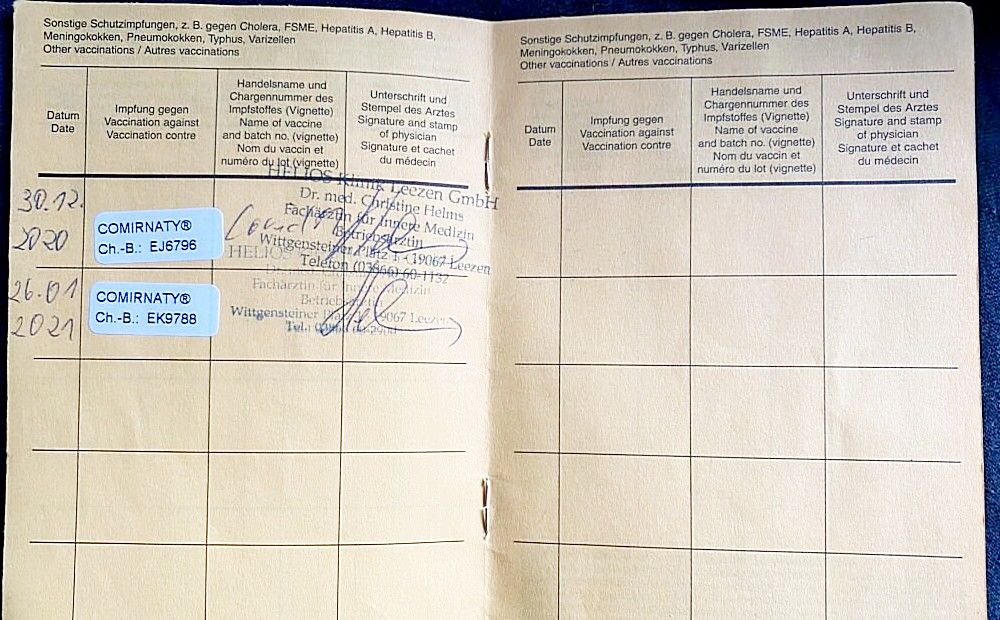 Sonstige Schutzimpfungen, z. B. gegen Cholera, FSME, Hepatitis A, Hepatitis B,
Meningokokken, Pneumokokken, Typhus, Varizellen
Other vaccinations / Autres vaccinations
Datum
Date
Impfung gegen
Vaccination against
Vaccination contre
Handelsname und
Chargennummer des
Impfstoffes (Vignette)
Name of vaccine
and batch no. (vignette)
Nom du vaccin et
numéro du lot (vignette)
Unterschrift und
Stempel des Arztes
Signature and stamp
of physician
Signature et cachet
du médecin
30.12.
2020
COMIRNATY®
Ch.-B.: EJ6796
HELIOS Klinik Leezen GmbH
Dr. med. Christine Helms
Fachärztin für Innere Medizin
Betriebsärztin
Wittgensteiner Platz 1 - 19067 Leezen
Telefon (03866) 60-1132
26.01
2021
COMIRNATY®
Ch.-B.: EK9788
HELIOS
Fachärztin für Innere Medizin
Betriebsärztin
Wittgensteiner Platz 19067 Leezen
Tel.:
Sonstige Schutzimpfungen, z. B. gegen Cholera, FSME, Hepatitis A, Hepatitis B,
Meningokokken, Pneumokokken, Typhus, Varizellen
Other vaccinations / Autres vaccinations
Datum
Date
Impfung gegen
Vaccination against
Vaccination contre
Handelsname und
Chargennummer des
Impfstoffes (Vignette)
Name of vaccine
and batch no. (vignette)
Nom du vaccin et
numéro du lot (vignette)
Unterschrift und
Stempel des Arztes
Signature and stamp
of physician
Signature et cachet
du médecin